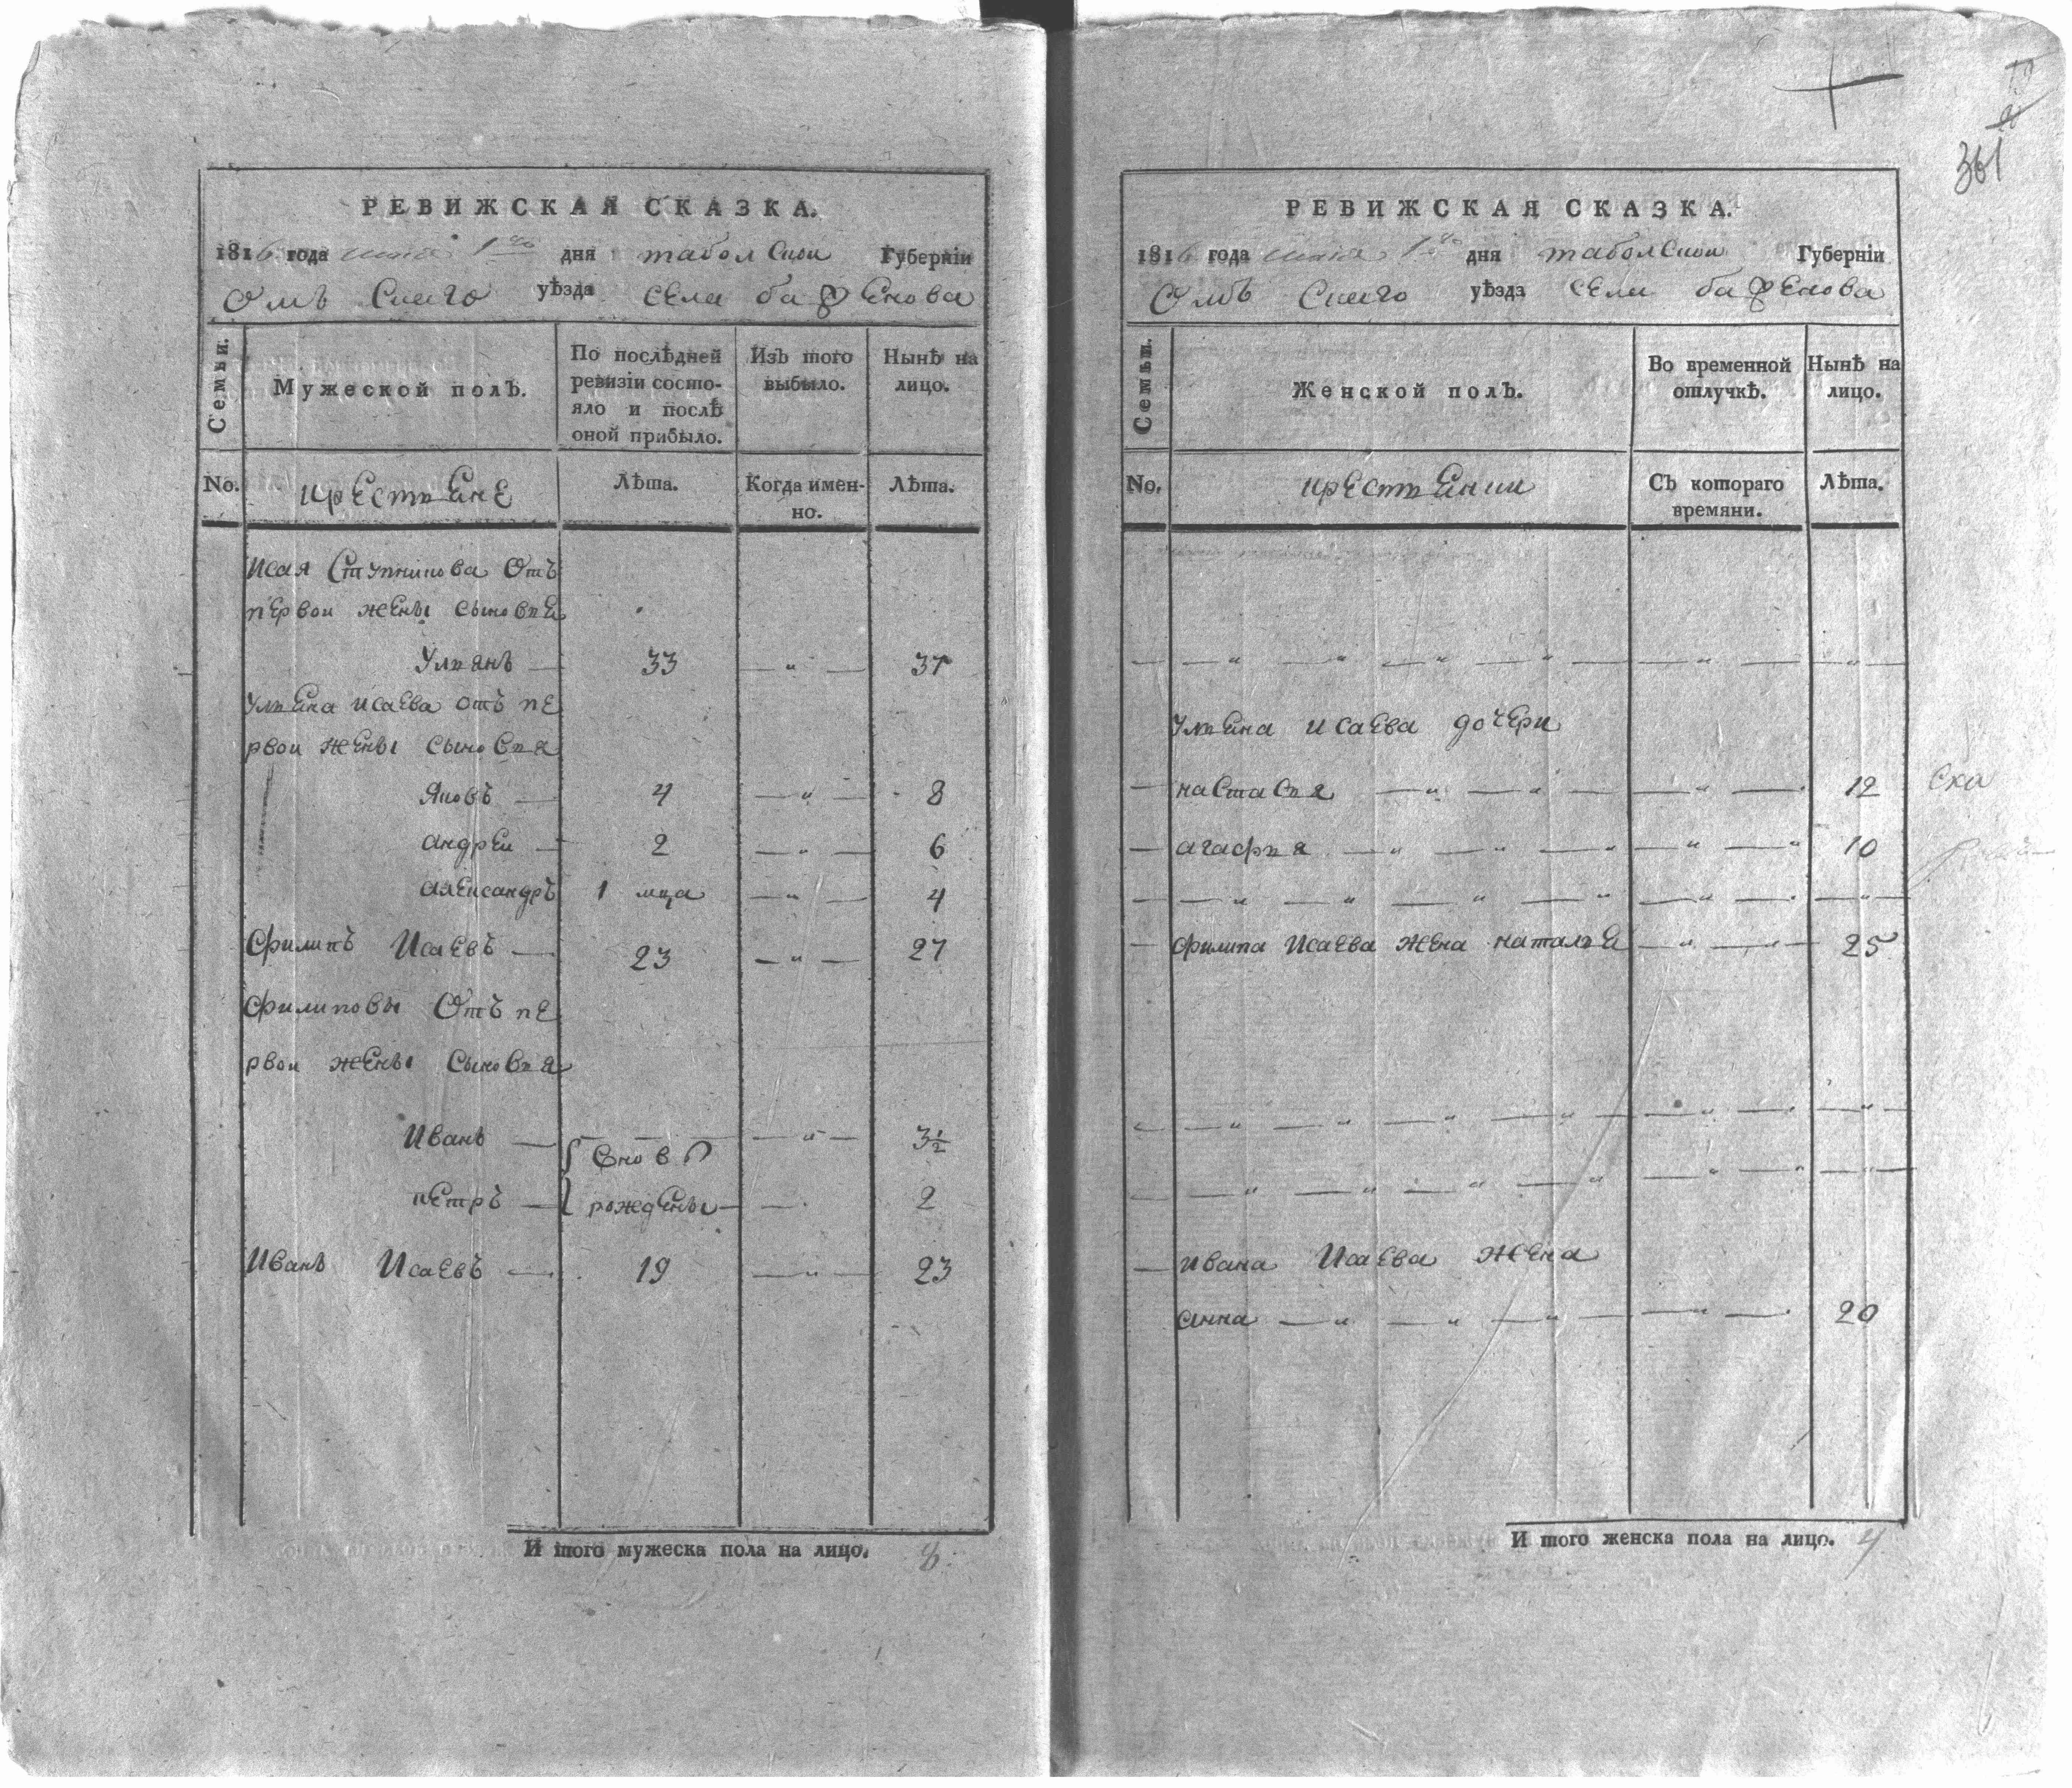 РЕВИЖСКАЯ СКАЗКА.
1816 года 1го дня таболской Губерніи
Омъ Скаго уѣзда села баженова
Семьи.
Мужеской полъ.
По послѣдней ревизіи состояло и послѣ оной прибыло.
Изъ того выбыло.
Нынѣ на лицо.
No.
крестьяне
Лѣта.
Когда именно.
Лѣта.
Исая Ступникова Отъ
первои жены сыновья
Ульянъ — 33 — " — 37
Ульяна исаева отъ пе
рвои жены сыновья
Яковъ — 4 — " — 8
андреи — 2 — " — 6
александръ 1 мца — " — 4
Филипъ Исаевъ — 23 — " — 27
Филиповы Отъ пе
рвои жены сыновья
Иванъ — — " — 3½
Сновѣ
петръ — рождены — 2
Иванъ Исаевъ — 19 — " — 23
И того мужеска пола на лицо. 8
361
РЕВИЖСКАЯ СКАЗКА.
1816 года 1го дня таболской Губерніи
Омъ Скаго уѣзда села баженова
Семьи.
Женской полъ.
Во временной отлучкѣ.
Нынѣ на лицо.
No.
крестьянки
Съ котораго времяни.
Лѣта.
— — " — " — " — " — " — "
ульяна исаева дочери
— настасья — " — " — " — 12
— агафья — " — " — " — " — " 10
— — " — " — " — " — " — "
— филипа Исаева жена наталья — " — 25
— — " — " — " — " — " — "
— — " — " — " — " — " — "
— ивана Исаева жена
анна — " — " — " — " — 20
И того женска пола на лицо. 4